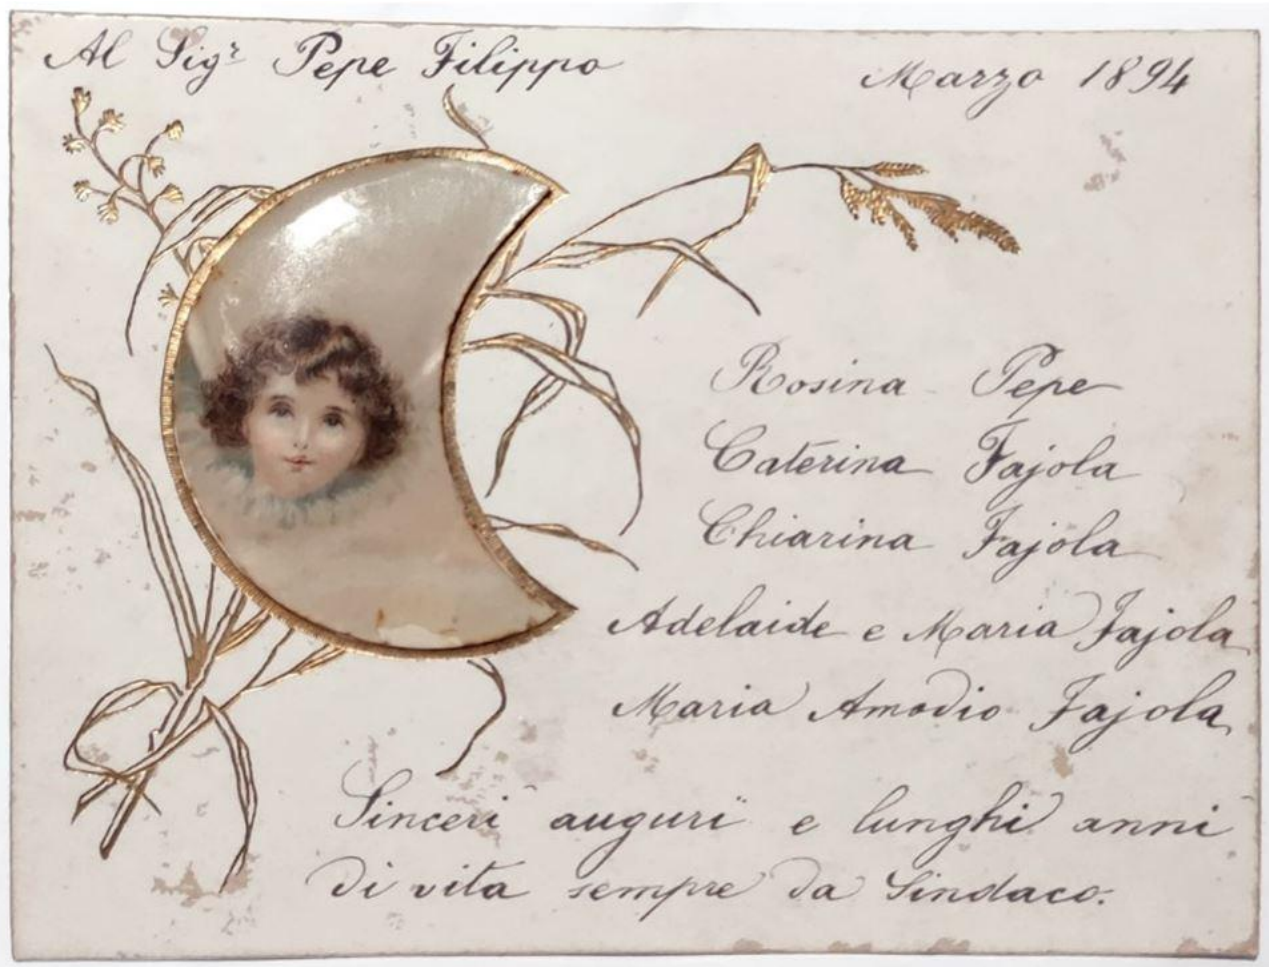 Al Sigr Pepe Filippo
Marzo 1894
Rosina Pepe
Caterina Fajola
Chiarina Fajola
Adelaide e Maria Fajola
Maria Amodio Fajola
Sinceri auguri e lunghi anni
di vita sempre da Sindaco.